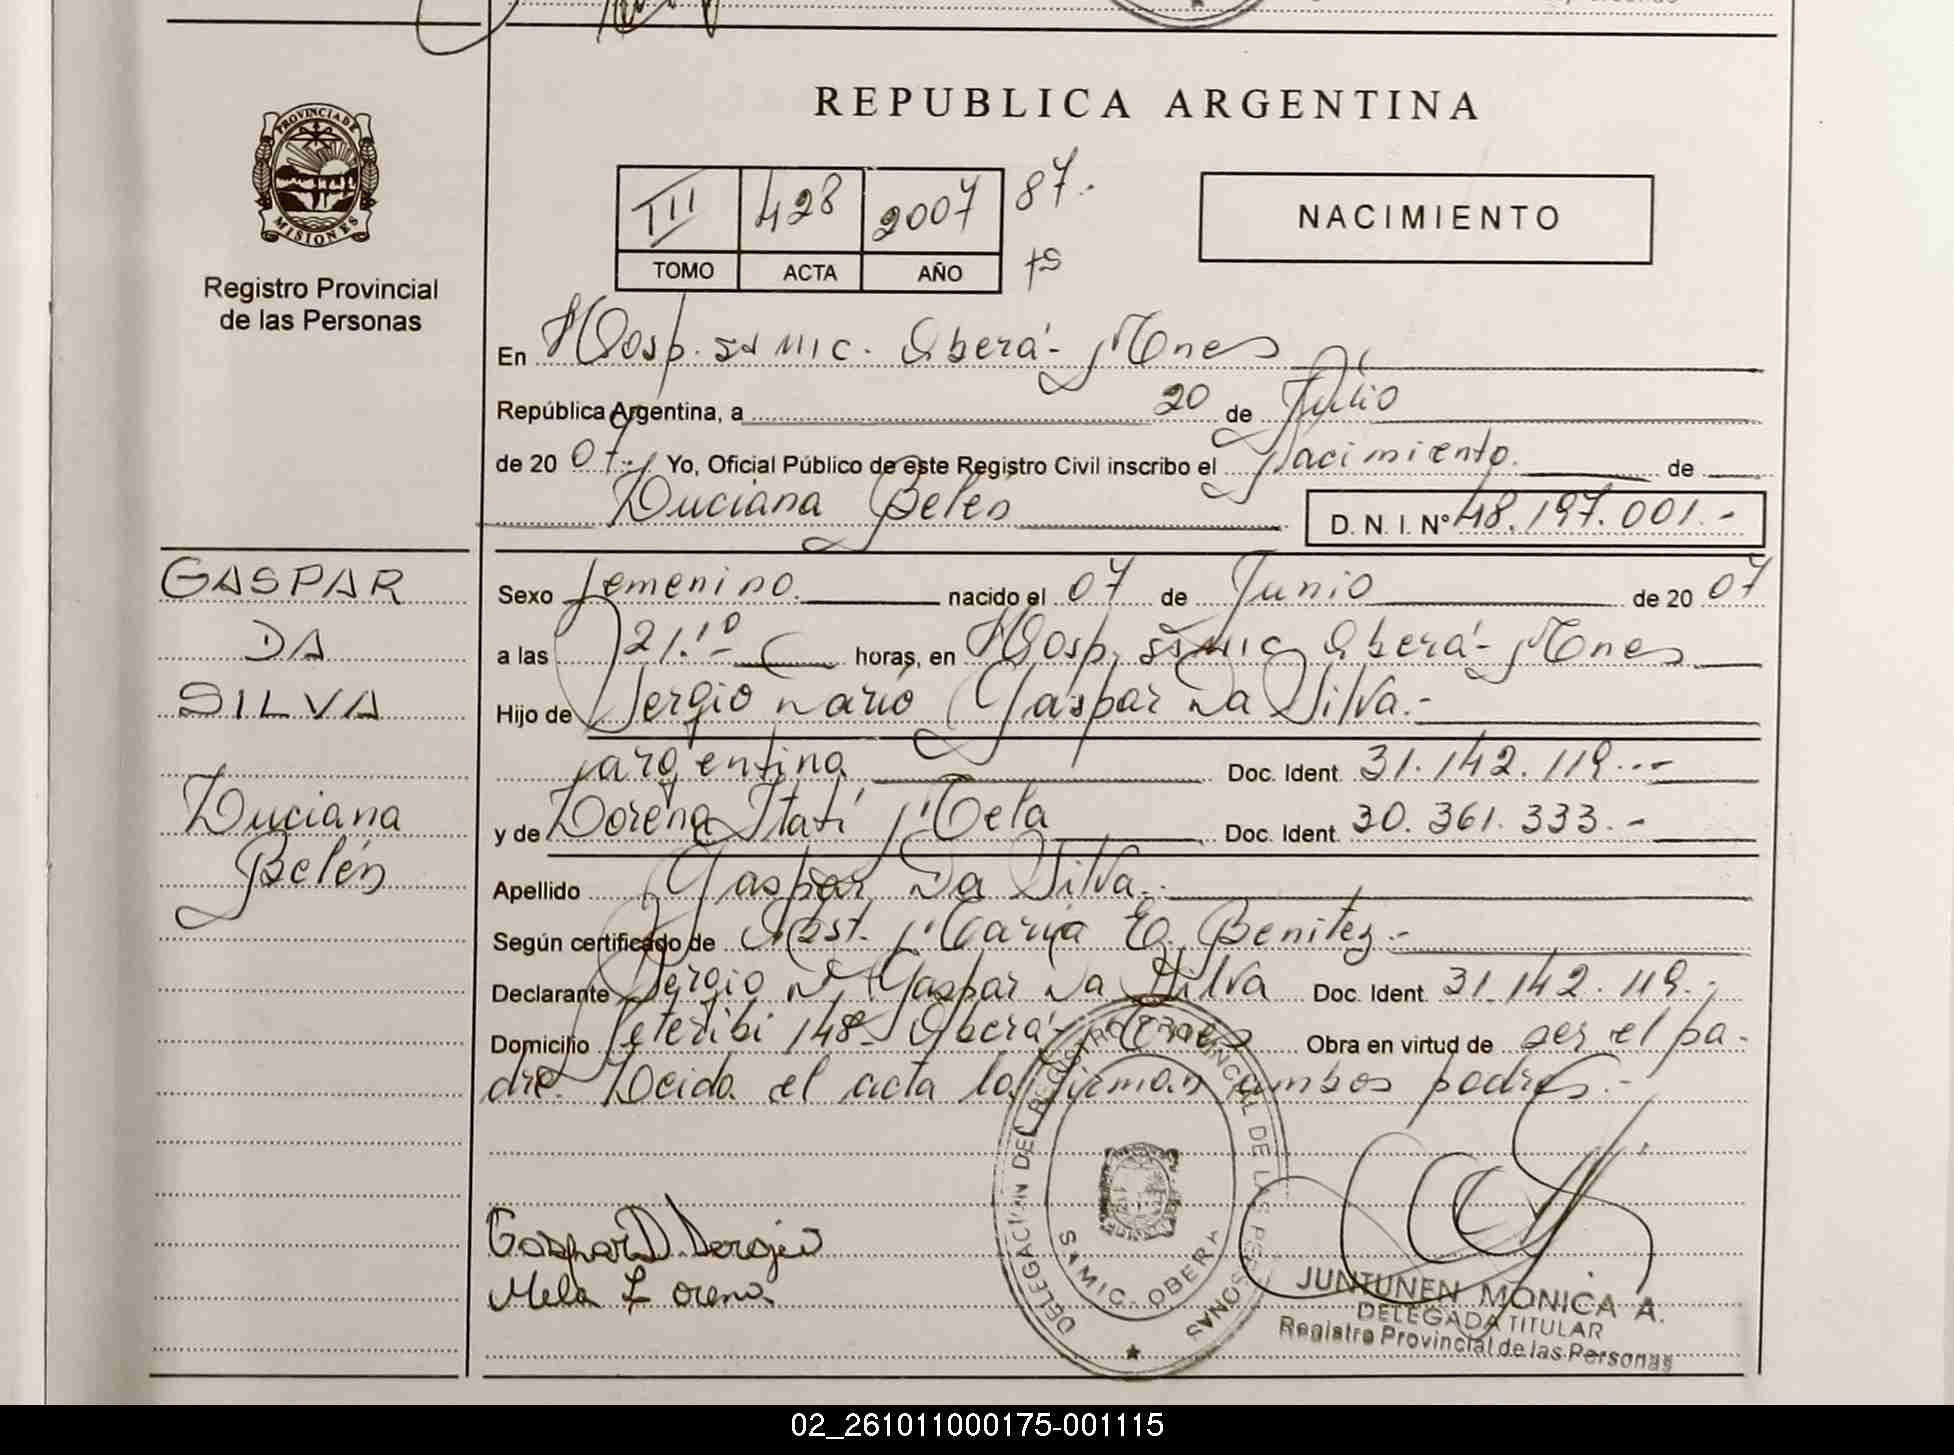 REPUBLICA ARGENTINA
PROVINCIA DE
MISIONES
Registro Provincial
de las Personas
III 428 2007 87.-
TOMO ACTA AÑO
NACIMIENTO
En Hosp. SAMIC. Oberá - Mnes
República Argentina, a 20 de Julio
de 20 07.- Yo, Oficial Público de este Registro Civil inscribo el Nacimiento. de
Luciana Belén D. N. I. Nº 48.197.001.-
GASPAR
DA
SILVA
Luciana
Belén
Sexo femenino. nacido el 07 de Junio de 20 07
a las 21.10 horas, en Hosp. SAMIC Oberá - Mnes
Hijo de Sergio Darío Gaspar Da Silva.-
argentina Doc. Ident. 31.142.119.-
y de Lorena Itatí Mela Doc. Ident. 30.361.333.-
Apellido Gaspar Da Silva.-
Según certificado de Obst. María E. Benitez.-
Declarante Sergio D. Gaspar Da Silva Doc. Ident. 31.142.119.-
Domicilio Peteribi 148 - Oberá - Mnes Obra en virtud de ser el pa-
dre. Leida el acta la firman ambos padres.-
Gaspar D. Sergio
Mela Lorena
DELEGACION DEL REGISTRO PROVINCIAL DE LAS PERSONAS
SAMIC - OBERA
JUNTUNEN MONICA A.
DELEGADA TITULAR
Registro Provincial de las Personas
02_261011000175-001115